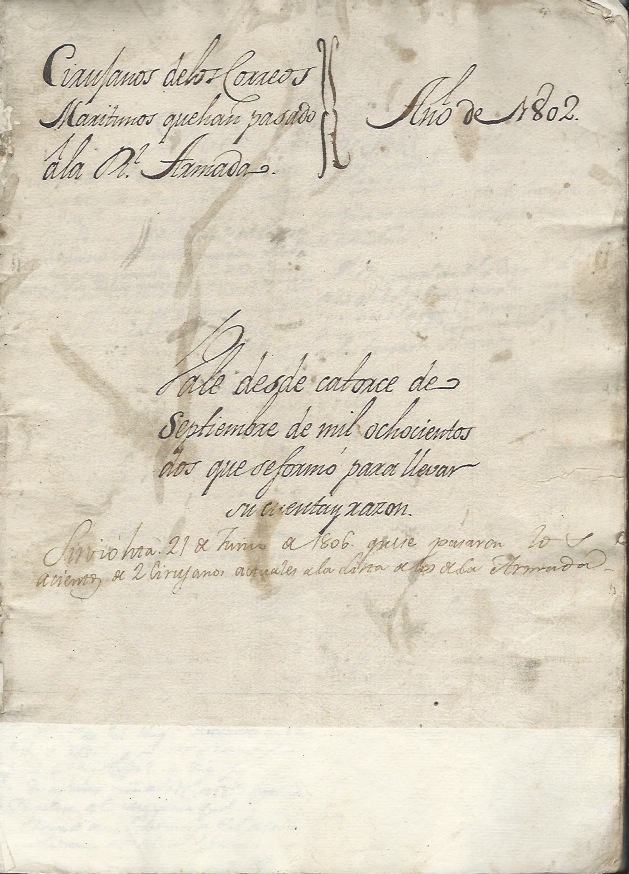 Cirujanos de los Correos
Maritimos que han pasado
á la Rl. Armada.
Año de 1802.
Vale desde catorce de
Septiembre de mil ochocientos
dos que se formó para llevar
su cuenta y razon.
Sirvió hta. 21 de Junio de 1806 que se pasaron los
acientos de 2 Cirujanos actuales a la Lista de los de la Armada